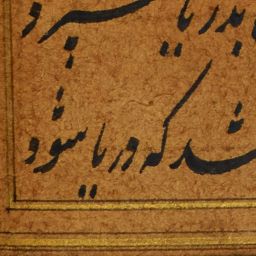 بدریا سپرد
شد که دریا شود